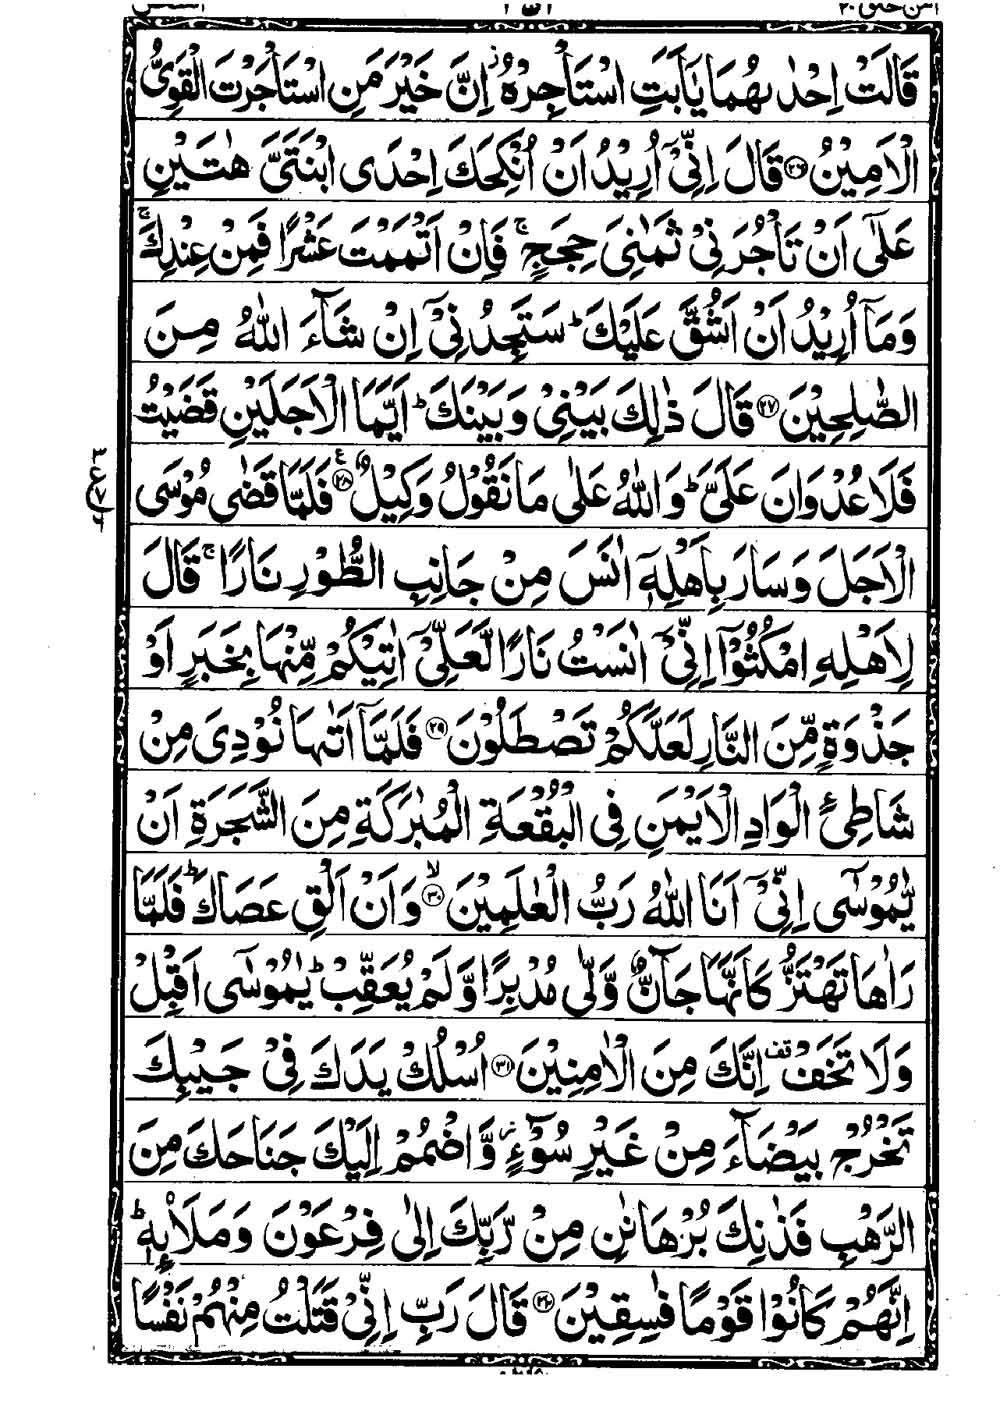 قَالَتْ اِحْدٰىهُمَا يٰۤاَبَتِ اسْتَاْجِرْهُ ؗ اِنَّ خَيْرَ مَنِ اسْتَاْجَرْتَ الْقَوِىُّ
الْاَمِيْنُ ﴿۲۶﴾ قَالَ اِنِّىْۤ اُرِيْدُ اَنْ اُنْكِحَكَ اِحْدَى ابْنَتَىَّ هٰتَيْنِ
عَلٰۤى اَنْ تَاْجُرَنِىْ ثَمٰنِىَ حِجَجٍ ۚ فَاِنْ اَتْمَمْتَ عَشْرًا فَمِنْ عِنْدِكَ ۚ
وَمَاۤ اُرِيْدُ اَنْ اَشُقَّ عَلَيْكَ ؕ سَتَجِدُنِىْۤ اِنْ شَآءَ اللّٰهُ مِنَ
الصّٰلِحِيْنَ ﴿۲۷﴾ قَالَ ذٰلِكَ بَيْنِىْ وَبَيْنَكَ ؕ اَيَّمَا الْاَجَلَيْنِ قَضَيْتُ
فَلَا عُدْوَانَ عَلَىَّ ؕ وَاللّٰهُ عَلٰى مَا نَقُوْلُ وَكِيْلٌ ﴿۲۸﴾ ع فَلَمَّا قَضٰى مُوْسَى
الْاَجَلَ وَسَارَ بِاَهْلِهٖۤ اٰنَسَ مِنْ جَانِبِ الطُّوْرِ نَارًا ۚ قَالَ
لِاَهْلِهِ امْكُثُوْۤا اِنِّىْۤ اٰنَسْتُ نَارًا لَّعَلِّىْۤ اٰتِيْكُمْ مِّنْهَا بِخَبَرٍ اَوْ
جَذْوَةٍ مِّنَ النَّارِ لَعَلَّكُمْ تَصْطَلُوْنَ ﴿۲۹﴾ فَلَمَّاۤ اَتٰىهَا نُوْدِىَ مِنْ
شَاطِئِ الْوَادِ الْاَيْمَنِ فِى الْبُقْعَةِ الْمُبٰرَكَةِ مِنَ الشَّجَرَةِ اَنْ
يّٰمُوْسٰۤى اِنِّىْۤ اَنَا اللّٰهُ رَبُّ الْعٰلَمِيْنَ ﴿۳۰﴾ ۙ وَاَنْ اَلْقِ عَصَاكَ ؕ فَلَمَّا
رَاٰهَا تَهْتَزُّ كَاَنَّهَا جَآنٌّ وَّلّٰى مُدْبِرًا وَّلَمْ يُعَقِّبْ ؕ يٰمُوْسٰۤى اَقْبِلْ
وَلَا تَخَفْ قف اِنَّكَ مِنَ الْاٰمِنِيْنَ ﴿۳۱﴾ اُسْلُكْ يَدَكَ فِىْ جَيْبِكَ
تَخْرُجْ بَيْضَآءَ مِنْ غَيْرِ سُوْٓءٍ ؗ وَّاضْمُمْ اِلَيْكَ جَنَاحَكَ مِنَ
الرَّهْبِ فَذٰنِكَ بُرْهَانٰنِ مِنْ رَّبِّكَ اِلٰى فِرْعَوْنَ وَمَلَاۡئِهٖ ؕ
اِنَّهُمْ كَانُوْا قَوْمًا فٰسِقِيْنَ ﴿۳۲﴾ قَالَ رَبِّ اِنِّىْ قَتَلْتُ مِنْهُمْ نَفْسًا